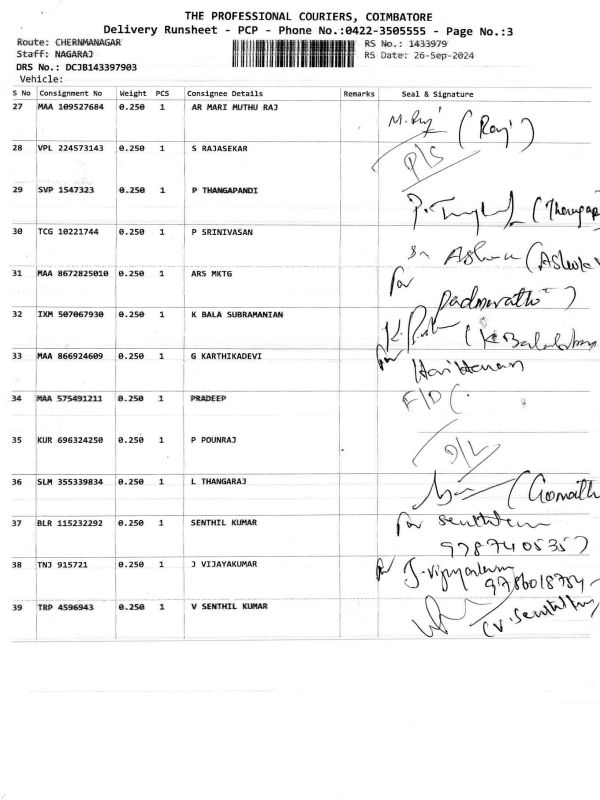 THE PROFESSIONAL COURIERS, COIMBATORE
Delivery Runsheet - PCP - Phone No.:0422-3505555 - Page No.:3
Route: CHERNMANAGAR RS No.: 1433979
Staff: NAGARAJ RS Date: 26-Sep-2024
DRS No.: DCJB143397903
Vehicle:
S No Consignment No Weight PCS Consignee Details Remarks Seal & Signature
27 MAA 109527684 0.250 1 AR MARI MUTHU RAJ
M. Raj (Raj)
28 VPL 224573143 0.250 1 S RAJASEKAR
P/S
29 SVP 1547323 0.250 1 P THANGAPANDI
30 TCG 10221744 0.250 1 P SRINIVASAN
31 MAA 8672825010 0.250 1 ARS MKTG
for
32 IXM 507067930 0.250 1 K BALA SUBRAMANIAN
33 MAA 866924609 0.250 1 G KARTHIKADEVI
34 MAA 575491211 0.250 1 PRADEEP
F/D (
35 KUR 696324250 0.250 1 P POUNRAJ
D/L
36 SLM 355339834 0.250 1 L THANGARAJ
(Gomath
37 BLR 115232292 0.250 1 SENTHIL KUMAR
for
9787405357
38 TNJ 915721 0.250 1 J VIJAYAKUMAR
for
39 TRP 4596943 0.250 1 V SENTHIL KUMAR